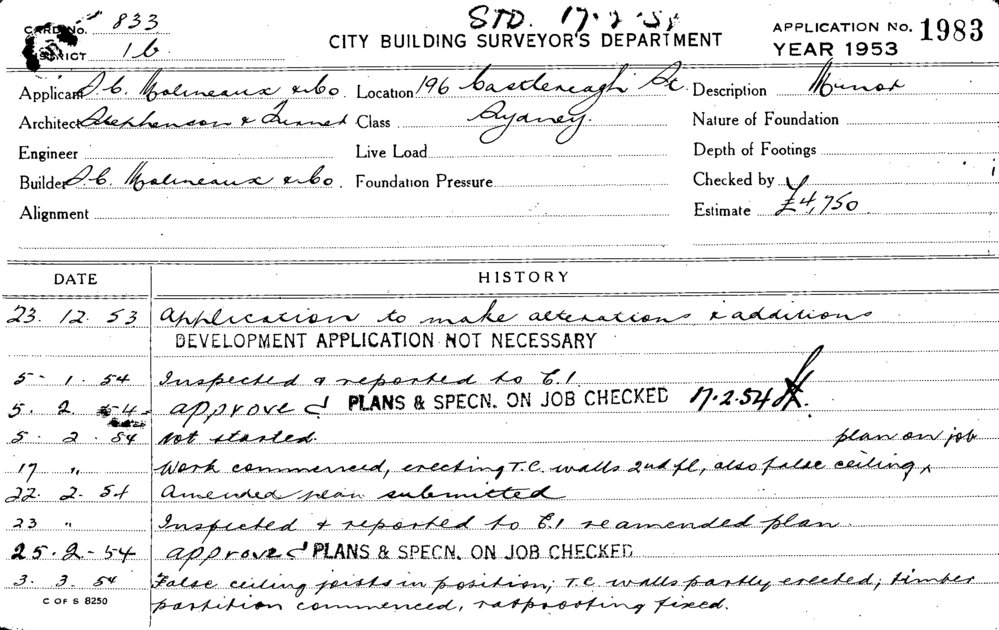 CARD No. 833
DISTRICT 16
STD. 17.2.54
CITY BUILDING SURVEYOR'S DEPARTMENT
APPLICATION No. 1983
YEAR 1953
Applicant S.C. Molineaux & Co. Location 196 Castlereagh St. Description Minor
Architect Stephenson & Turner Class Sydney. Nature of Foundation
Engineer Live Load Depth of Footings
Builder S.C. Molineaux & Co. Foundation Pressure Checked by
Alignment Estimate £4,750
DATE HISTORY
23. 12. 53 Application to make alterations & additions
DEVELOPMENT APPLICATION NOT NECESSARY
5 - 1. 54 Inspected & reported to C.I.
5. 2. 54 approved PLANS & SPECN. ON JOB CHECKED 17.2.54
5. 2. 54 Not started. plan on job
17 " Work commenced, erecting T.C. walls 2nd fl, also false ceiling
22. 2. 54 Amended plan submitted
23 " Inspected & reported to C.I re amended plan.
25. 2 - 54 approved PLANS & SPECN. ON JOB CHECKED
3. 3. 54 False ceiling joists in position; T.C. walls partly erected, timber
partition commenced, ratproofing fixed.
C OF S 8250